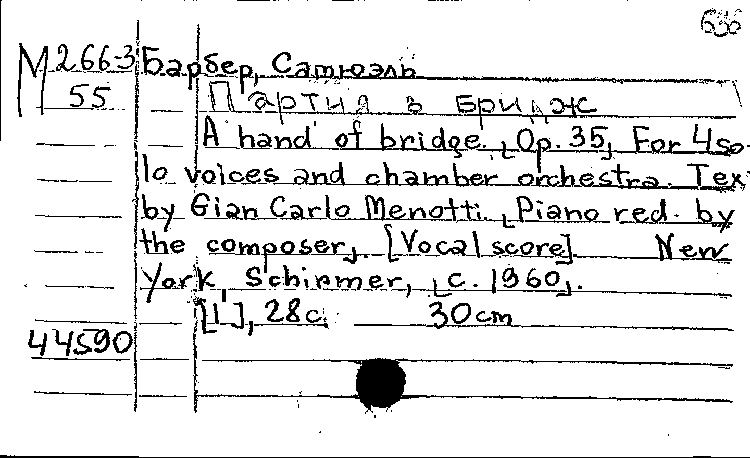 636
М 266-3 Барбер, Сатюэль
55 Партия в бридж
A hand of bridge. ⌊Op. 35⌋ For 4 so-
lo voices and chamber orchestra. Tex
by Gian Carlo Menotti. ⌊Piano red. by
the composer⌋. [Vocal score] New
York, Schirmer, ⌊c. 1960⌋.
[1], 28 c. 30 cm
44590